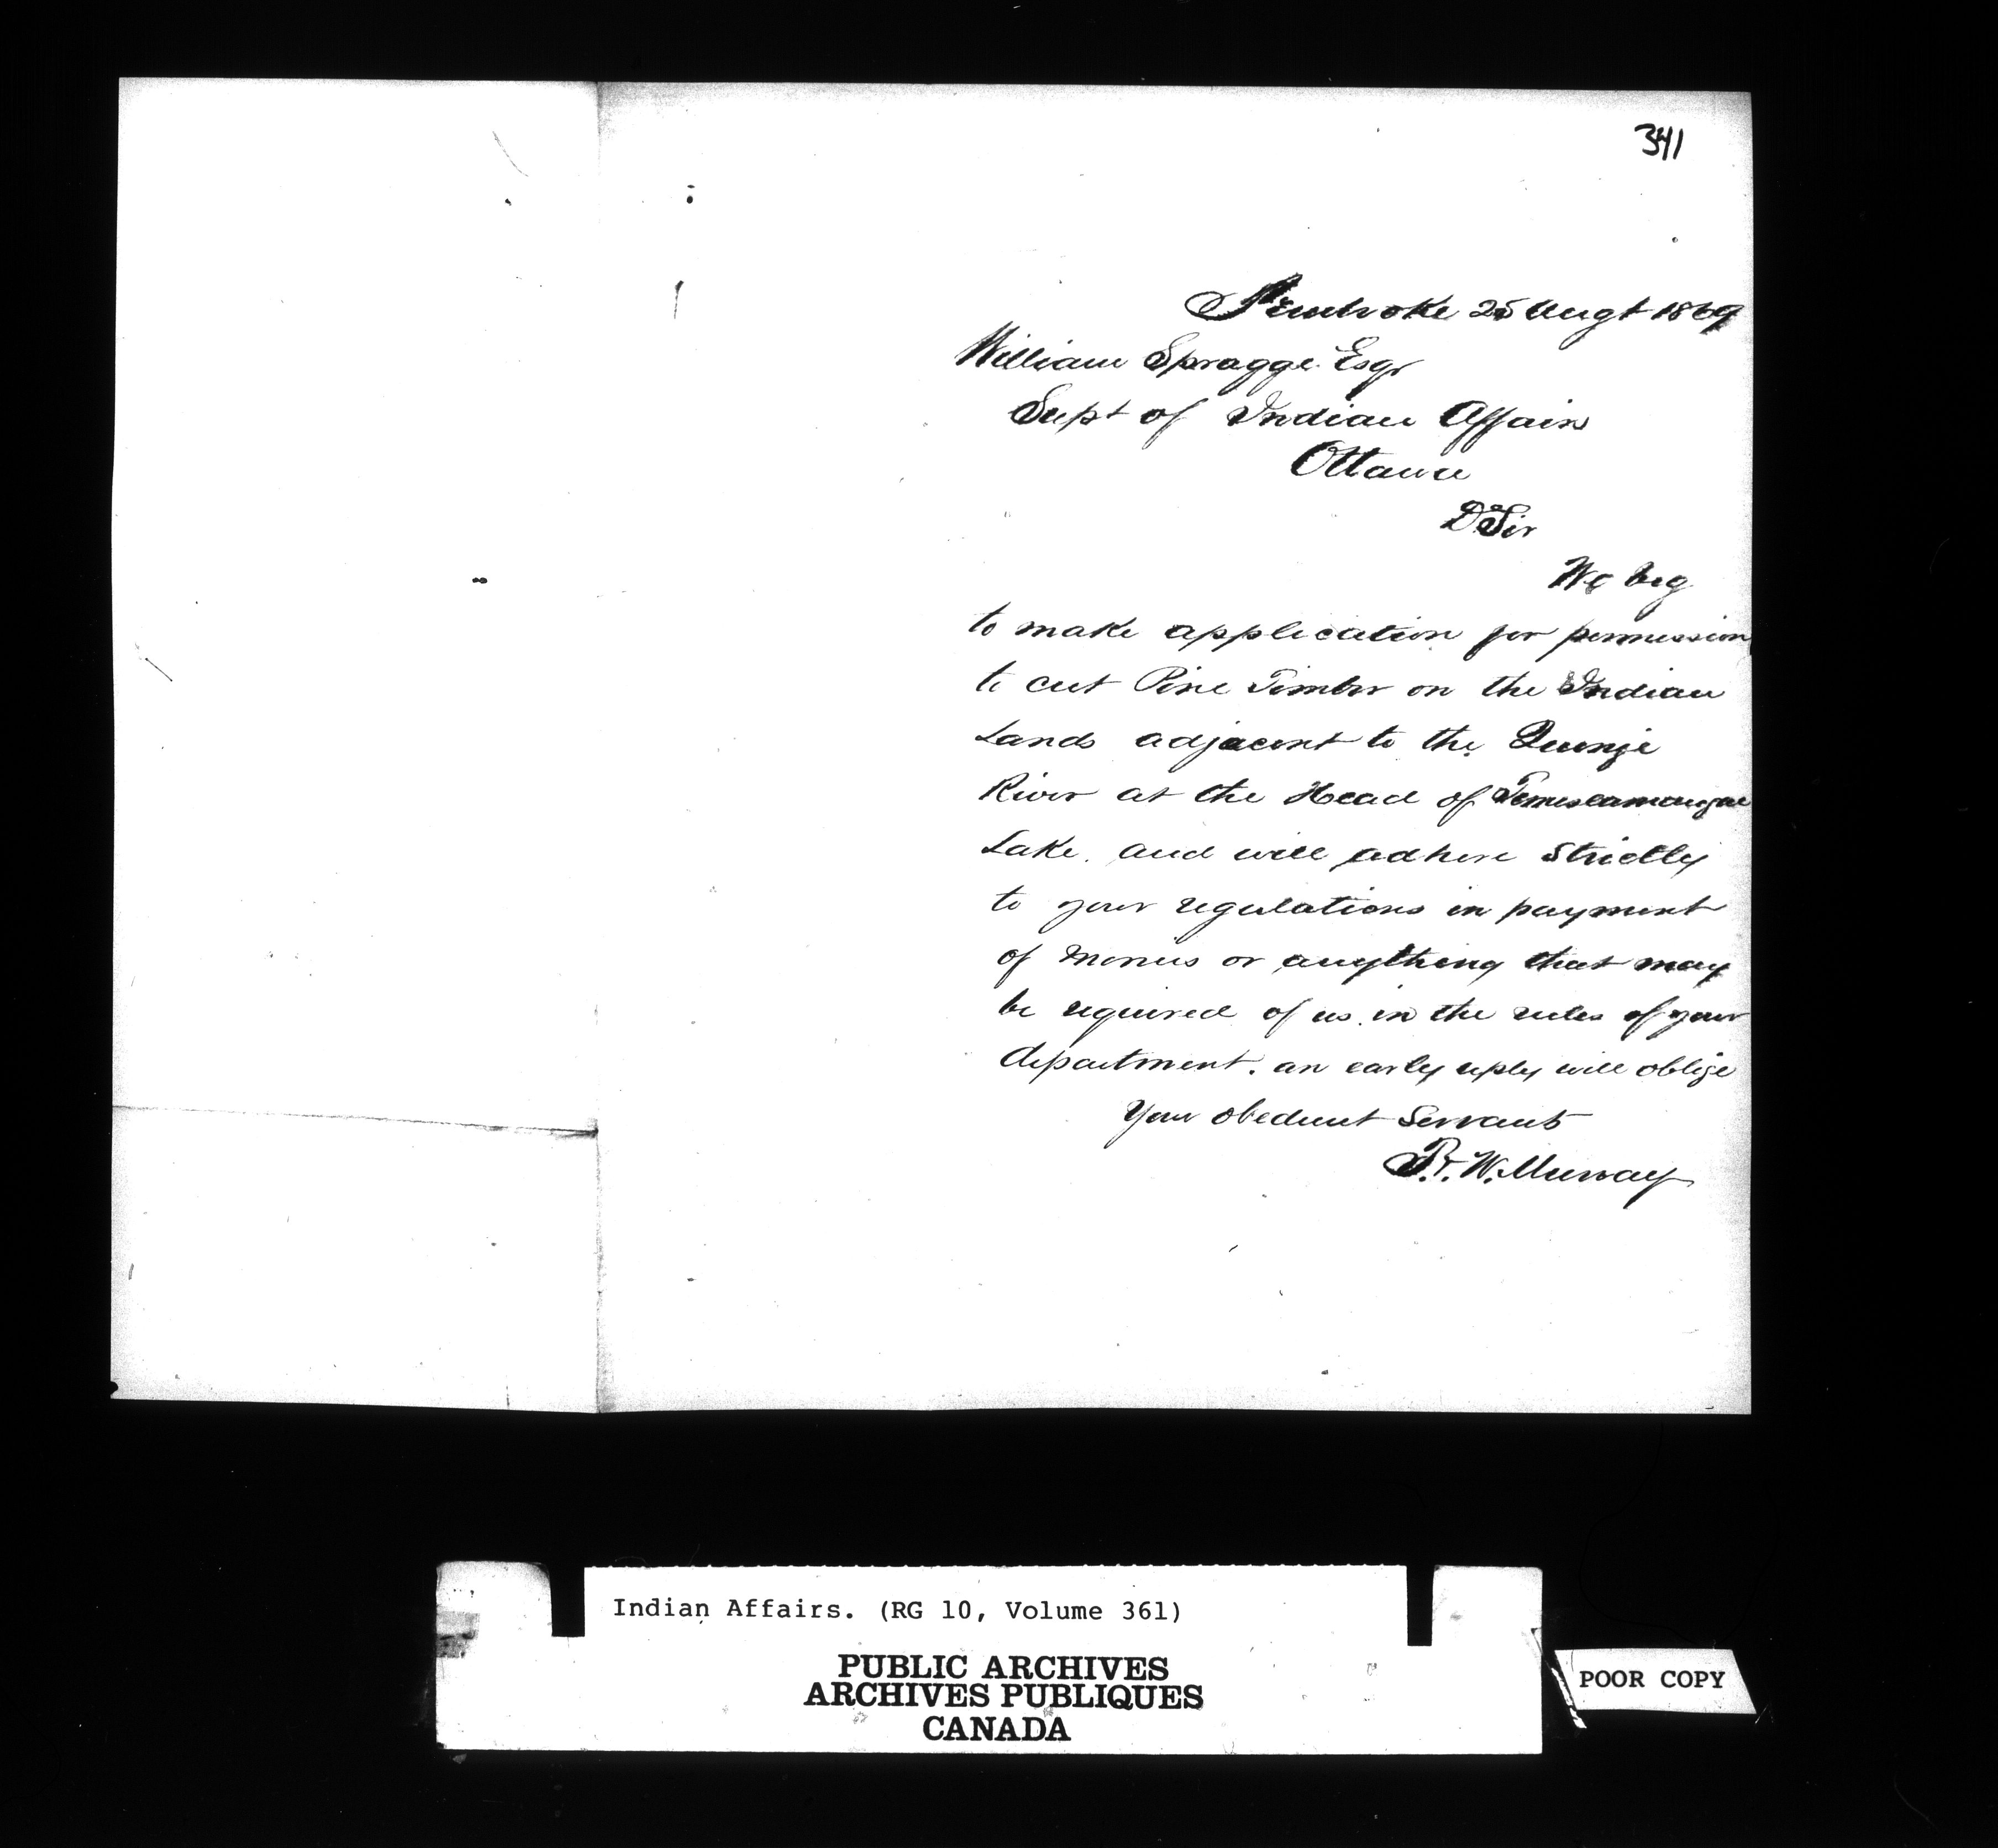 341
Pembroke 25 Augt 1869
William Spragge Esqr
Supt of Indian Affairs
Ottawa
D Sir
We beg
to make application for permission
to cut Pine Timber on the Indian
Lands adjacent to the Quinze
River at the Head of Temiscamangue
Lake. and will adhere Strictly
to your regulations in payment
of monies or anything that may
be required of us in the rules of your
department. an early reply will oblige
Your obedient Servants
W. Murray
Indian Affairs. (RG 10, Volume 361)
PUBLIC ARCHIVES
ARCHIVES PUBLIQUES
CANADA
POOR COPY